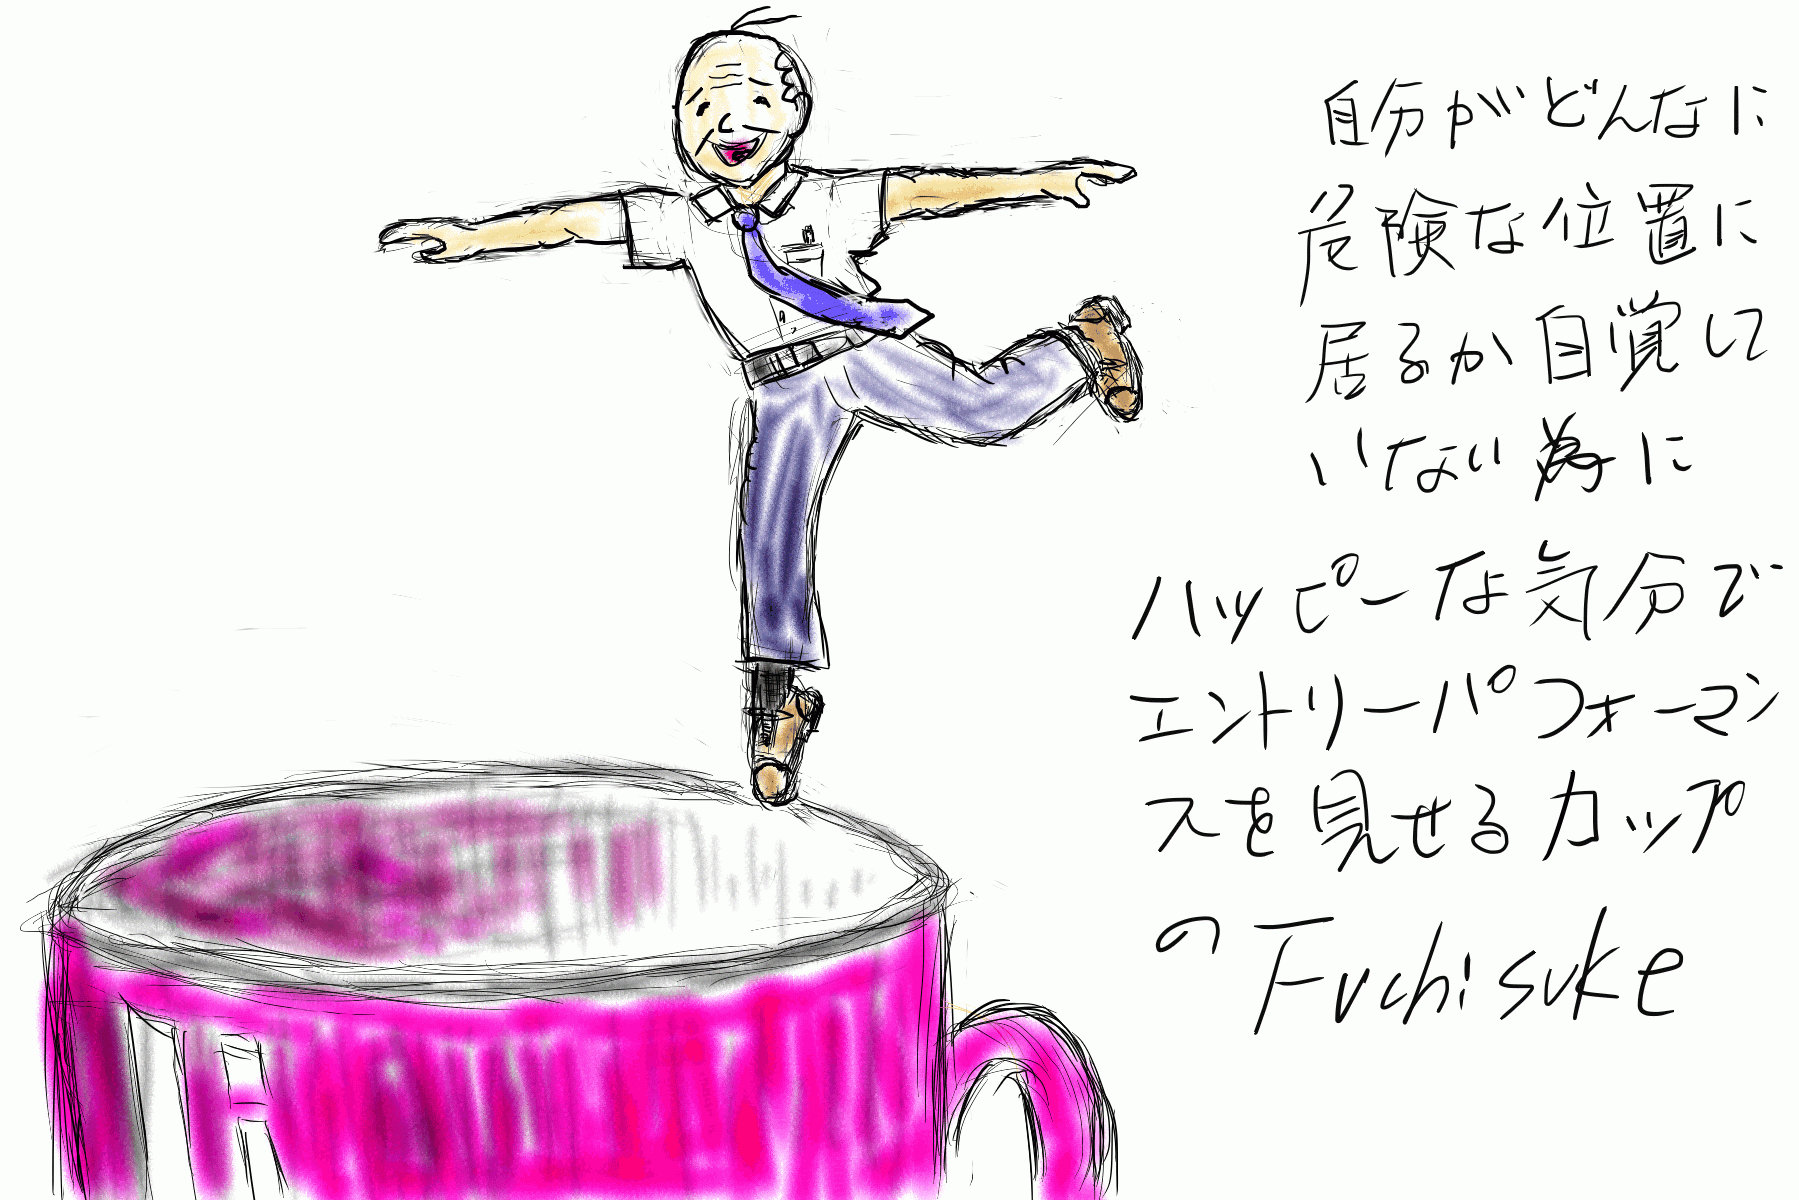 自分がどんなに
危険な位置に
居るか自覚して
いない為に
ハッピーな気分で
エントリーパフォーマン
スを見せるカップ
のFuchisuke